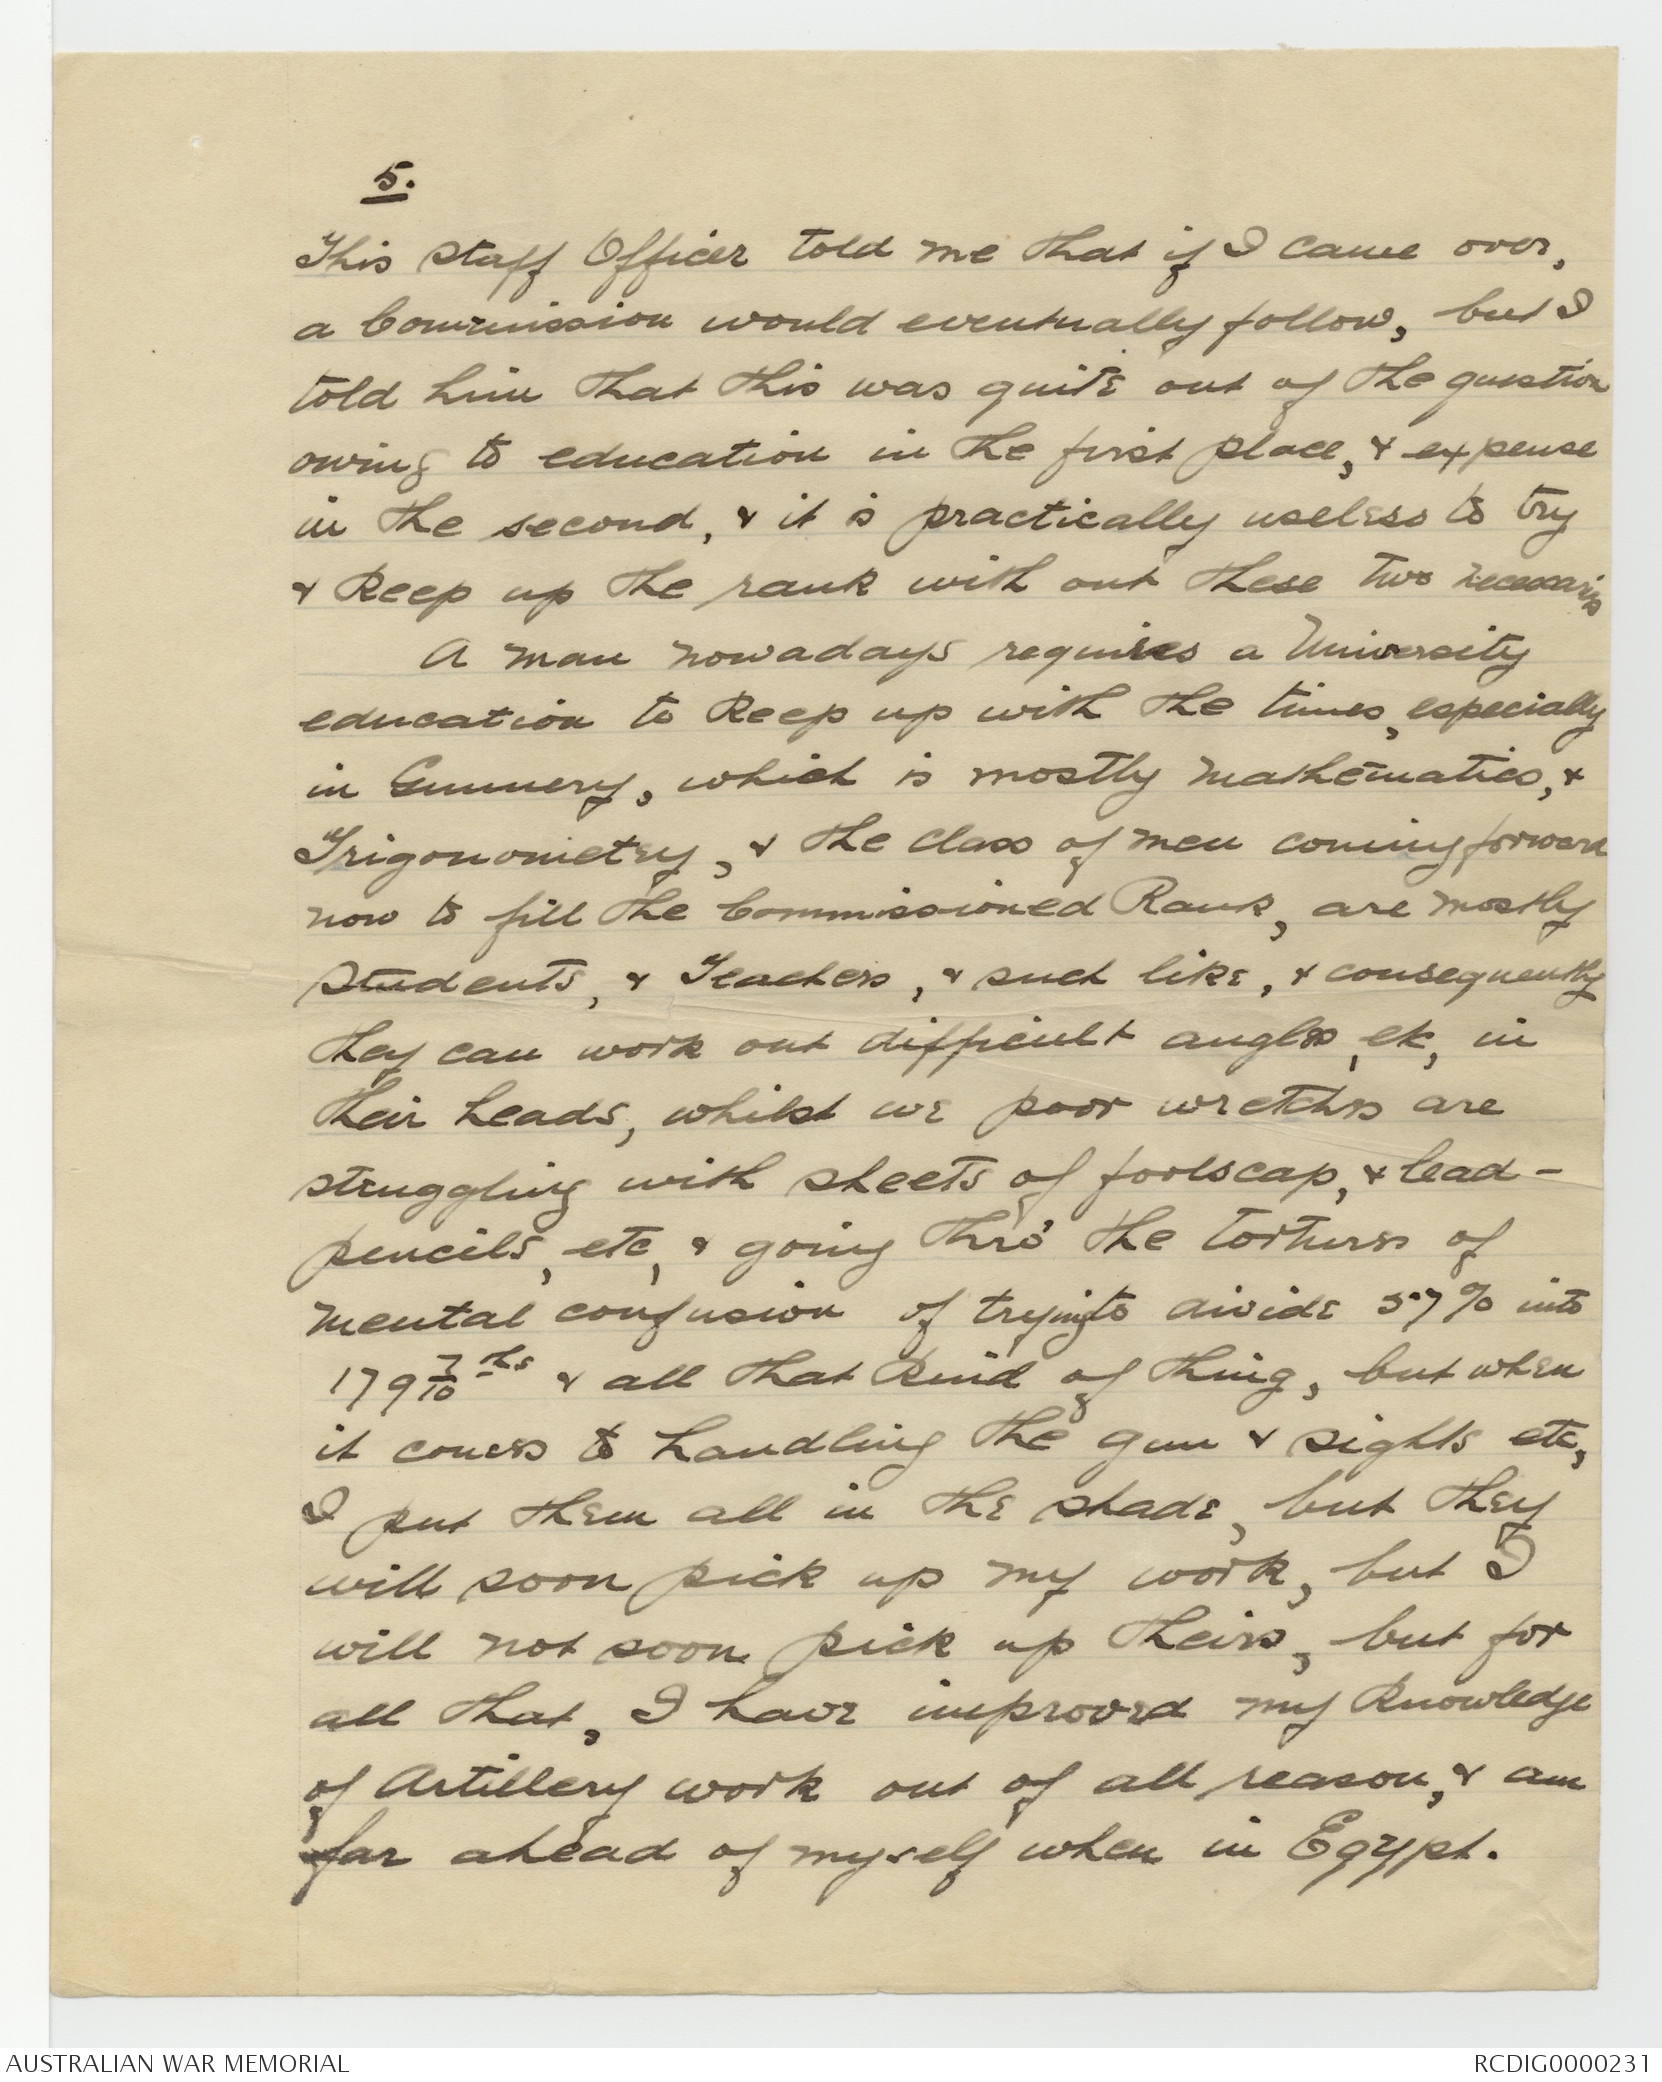 5.
This Staff Officer told me that if I came over,
a Commission would eventually follow, but I
told him that this was quite out of the question
owing to education in the first place, & expense
in the second, & it is practically useless to try
& keep up the rank with out these two necessaries
A man nowadays requires a University
education to keep up with the times, especially
in Gunnery, which is mostly mathematics, &
Trigonometry, & the class of men coming forward
now to fill the Commissioned Rank, are mostly
students, & Teachers, & such like, & consequently
they can work out difficult angles, etc, in
their heads, whilst we poor wretches are
struggling with sheets of foolscap, & lead-
pencils, etc, & going thro' the tortures of
mental confusion of trying to divide 5.7% into
179 7/10 ths & all that kind of thing, but when
it comes to handling the gun & sights etc,
I put them all in the shade, but they
will soon pick up my work, but I
will not soon pick up theirs, but for
all that, I have improved my knowledge
of Artillery work out of all reason, & am
far ahead of myself when in Egypt.
AUSTRALIAN WAR MEMORIAL
RCDIG0000231